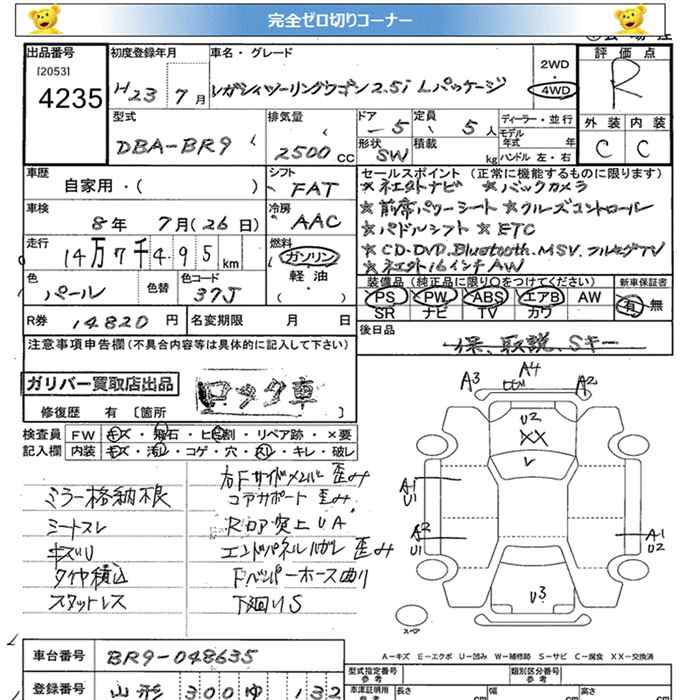 完全ゼロ切りコーナー
出品番号 初度登録年月 車名・グレード 評価点
[2053]
4235 H23年 7月 レガシィツーリングワゴン2.5i Lパッケージ 2WD 4WD R
型式 排気量 ドア 定員 ディーラー・並行 外装 内装
DBA-BR9 2500CC 5 5人 モデル年式 年 C C
形状 SW 積載 kg ハンドル 左・右
車歴 シフト セールスポイント (正常に機能するものに限ります)
自家用・( ) FAT ☆ネエタトナビ ☆バックカメラ
車検 冷房 ☆前席パワーシート ☆クルーズコントロール
8年 7月(26日) AAC ☆パドルシフト ☆ETC
走行 燃料 ☆CD・DVD.Bluetooth.MSV.フルセグTV
14万7千495km ガソリン ☆ネエクト16インチAW
色 色替 色コード 軽油 装備品(純正品に限り○をつけてください) 新車保証書
パール 37J ・( ) PS PW ABS エアB AW 有・無
SR ナビ TV カワ
R券 14820円 名変期限 月 日 後日品
注意事項申告欄(不具合内容等は具体的に記入して下さい) 保、取説、Sキー
ガリバー買取店出品 ロック車
修復歴 有 〔箇所 〕
検査員 FW キズ・飛石・ヒビ割・リペア跡・×要
記入欄 内装 キズ・汚レ・コゲ・穴・スレ・キレ・破レ
A3 A4 A2
U2
XX
A1
U1
A2
U1
A1
U2
U3
スペア
ミラー格納不良
シートスレ
キズU
タイヤ積込
スタットレス
右Fサイドメンバー歪み
コアサポート歪み
Rロア突上UA
エンドパネルハガレ歪み
Fバンパーホース曲リ
下廻りS
A=キズ E=エクボ U=凹み W=補修跡 S=サビ C=腐食 XX=交換済
車台番号 BR9-048635
登録番号 山形 300 ゆ 132
型式指定番号 参考 類別区分番号 参考
車庫証明用 参考 長さ cm 幅 cm 高さ cm